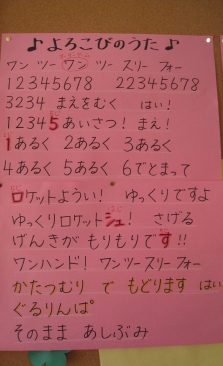 ♪よろこびのうた♪
ワン ツー ワン ツー スリー フォー
12345678 22345678
3234 まえをむく はい!
12345あいさつ! まえ!
1あるく 2あるく 3あるく
4あるく 5あるく 6でとまって
ロケットようい! ゆっくりですよ
ゆっくりロケットシュ! さげる
げんきが もりもりです!!
ワンハンド! ワンツースリーフォー
かたつむり で もどります はい
ぐるりんぱ
そのまま あしぶみ